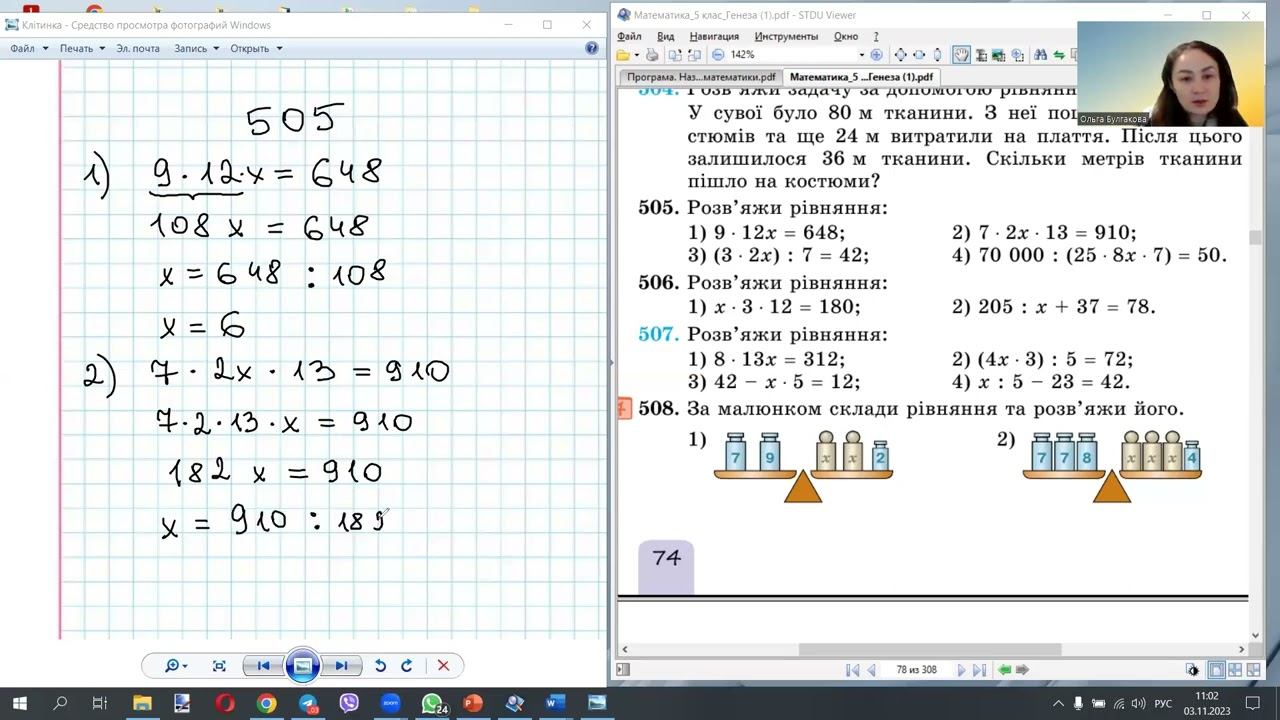 Клітинка - Средство просмотра фотографий Windows
Файл Печать Эл. почта Запись Открыть
505
1) 9 · 12 · x = 648
108 x = 648
x = 648 : 108
x = 6
2) 7 · 2x · 13 = 910
7 · 2 · 13 · x = 910
182 x = 910
x = 910 : 18
Математика_5 клас_Генеза (1).pdf - STDU Viewer
Файл Вид Навигация Инструменты Окно ?
142%
Програма. Наз...математики.pdf Математика_5 ...Генеза (1).pdf
Ольга Булгакова
504. Розв'яжи задачу за допомогою рівнян
У сувої було 80 м тканини. З неї по
стюмів та ще 24 м витратили на плаття. Після цього
залишилося 36 м тканини. Скільки метрів тканини
пішло на костюми?
505. Розв'яжи рівняння:
1) 9 · 12x = 648; 2) 7 · 2x · 13 = 910;
3) (3 · 2x) : 7 = 42; 4) 70 000 : (25 · 8x · 7) = 50.
506. Розв'яжи рівняння:
1) x · 3 · 12 = 180; 2) 205 : x + 37 = 78.
507. Розв'яжи рівняння:
1) 8 · 13x = 312; 2) (4x · 3) : 5 = 72;
3) 42 − x · 5 = 12; 4) x : 5 − 23 = 42.
508. За малюнком склади рівняння та розв'яжи його.
1) 7 9 x x 2 2) 7 7 8 x x x 4
74
78 из 308
24
zoom
РУС
11:02
03.11.2023